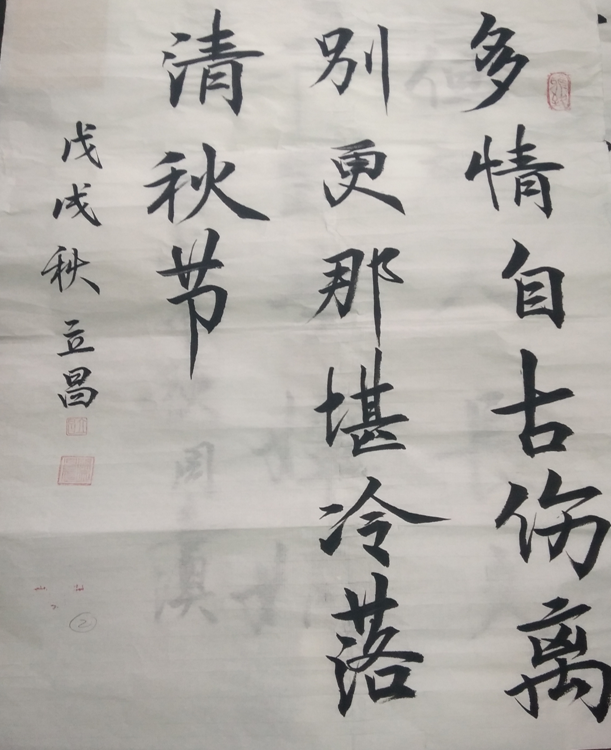 多情自古伤离
别更那堪冷落
清秋节
戊戌秋立昌
②